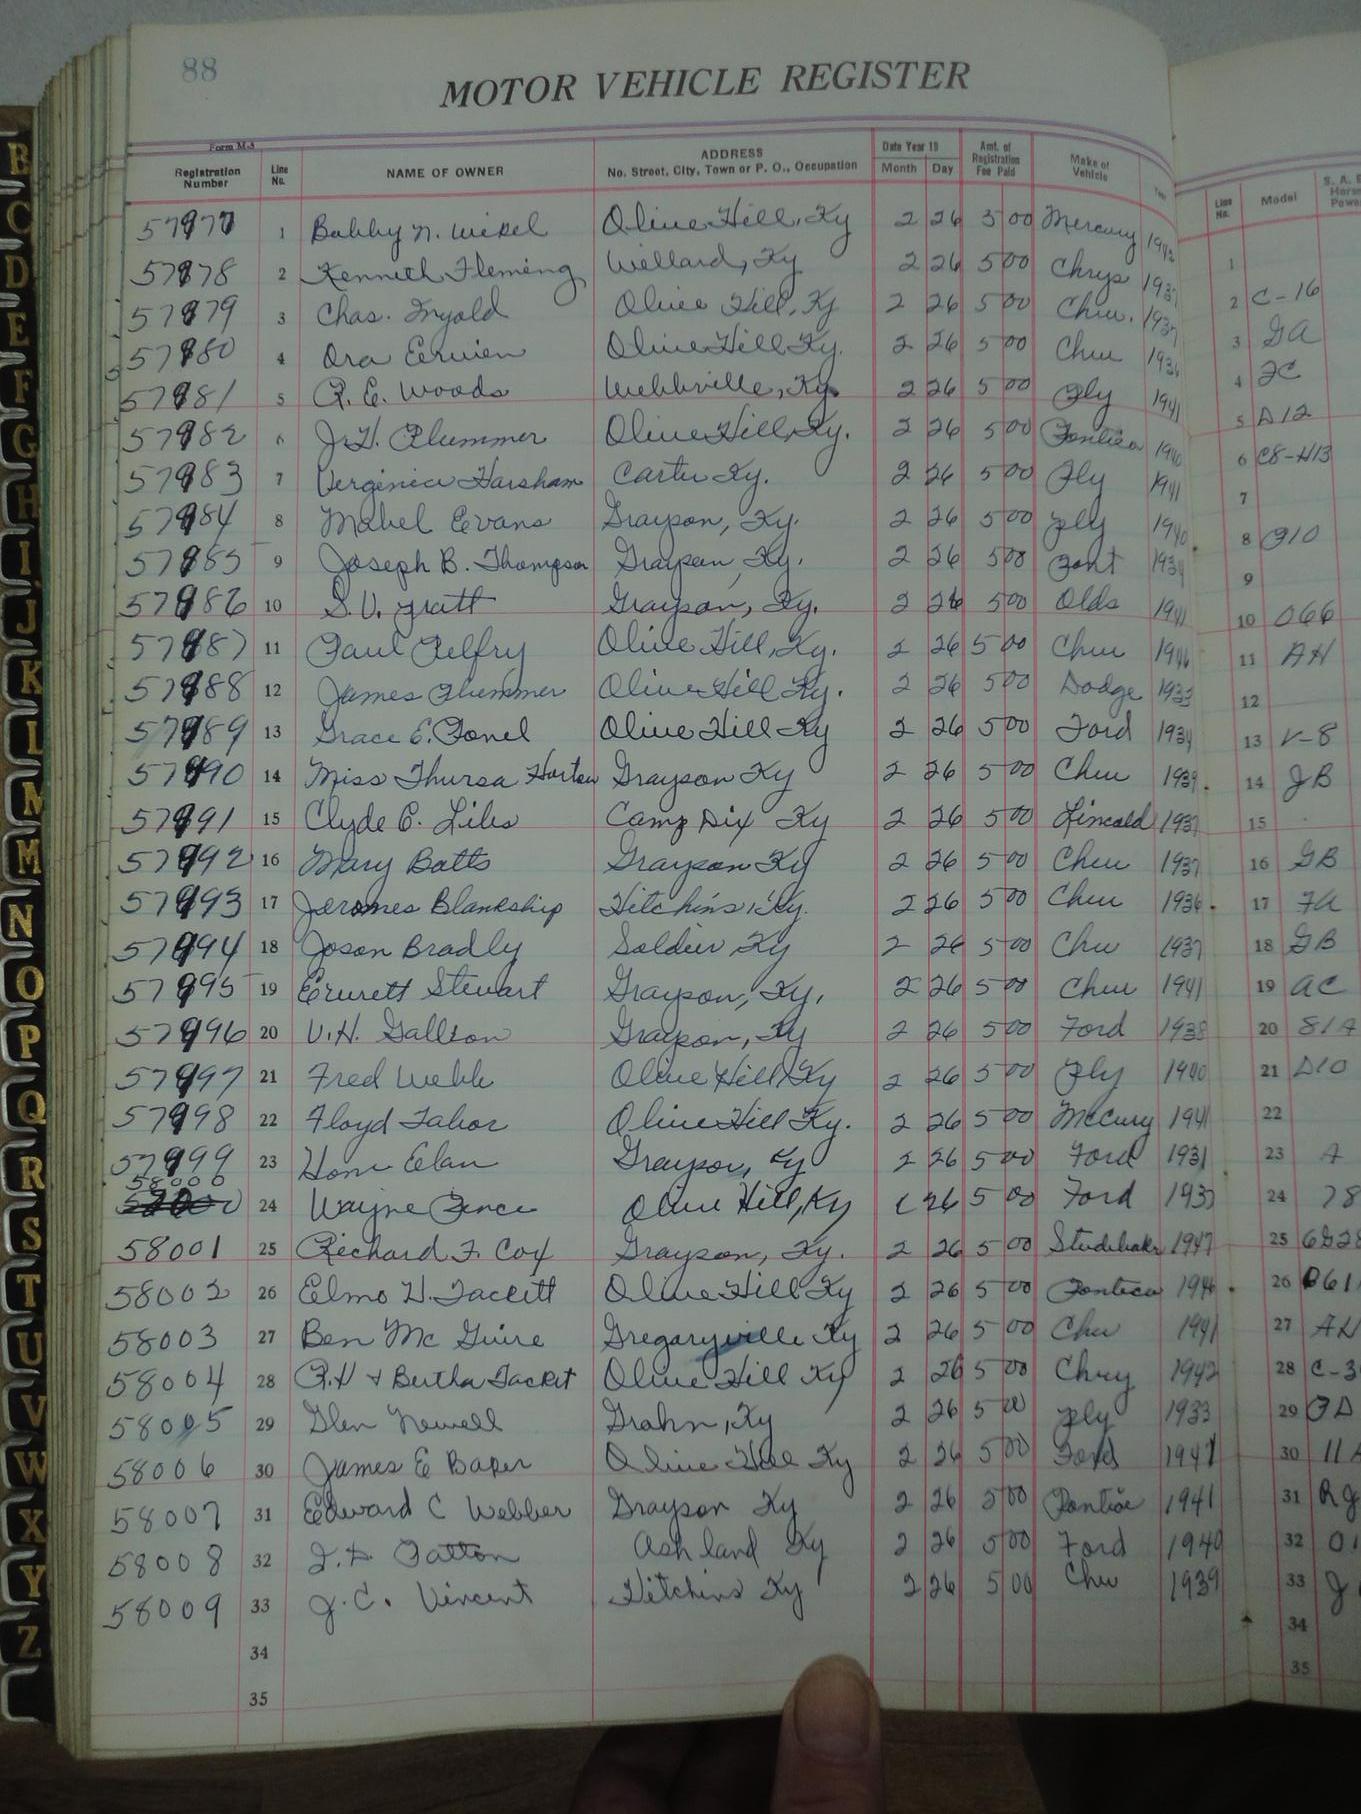 88
MOTOR VEHICLE REGISTER
Form M-5
Registration Number Line No. NAME OF OWNER ADDRESS No. Street, City, Town or P. O., Occupation Date Year 19 Month Day Amt. of Registration Fee Paid Make of Vehicle Year Line No. Model S. A. E. Horse Power
57977 1 Bobby N. Olive Hill, Ky 2 26 5 00 Mercury 1
57978 2 Kenneth Fleming Willard, Ky 2 26 5 00 Chrys 1937 2 C-16
57979 3 Chas. Olive Hill, Ky 2 26 5 00 Chev. 1937 3 GA
57980 4 Ora Olive Hill Ky. 2 26 5 00 Chev 1936 4 FC
57981 5 R. E. Woods Webbville, Ky. 2 26 5 00 Ply 1941 5 D12
57982 6 J. H. Plummer Olive Hill, Ky. 2 26 5 00 Pontica 1940 6 C8-H13
57983 7 Verginia Harsham Carter Ky. 2 26 5 00 Ply 1941 7
57984 8 Mabel Evans Grayson, Ky. 2 26 5 00 Ply 1940 8 P10
57985 9 Joseph B. Thompson Grayson, Ky. 2 26 5 00 Pont 1934 9
57986 10 S. V. Pratt Grayson, Ky. 2 26 5 00 Olds 1941 10 066
57987 11 Paul Pelfry Olive Hill, Ky. 2 26 5 00 Chev 1940 11 AH
57988 12 James Plummer Olive Hill Ky. 2 26 5 00 Dodge 1933 12
57989 13 Grace E. Olive Hill Ky 2 26 5 00 Ford 1934 13 V-8
57990 14 Miss Thursa Horton Grayson Ky 2 26 5 00 Chev 1939 14 JB
57991 15 Clyde C. Liles Camp Dix Ky 2 26 5 00 1937 15
57992 16 Mary Batts Grayson Ky 2 26 5 00 Chev 1937 16 GB
57993 17 Jeromes Blankship Hitchins, Ky. 2 26 5 00 Chev 1936 17 FA
57994 18 Joson Bradly Soldier, Ky 2 26 5 00 Chev 1937 18 GB
57995 19 Everett Stewart Grayson, Ky. 2 26 5 00 Chev 1941 19 AC
57996 20 V. H. Gallion Grayson, Ky 2 26 5 00 Ford 1938 20 81A
57997 21 Fred Webb Olive Hill, Ky 2 26 5 00 Ply 1940 21 D10
57998 22 Floyd Tabor Olive Hill Ky. 2 26 5 00 Mccury 1941 22
57999 23 Elam Grayson, Ky 2 26 5 00 Ford 1931 23 A
58000
24 Wayne Pence Olive Hill, Ky 26 5 00 Ford 1937 24 78
58001 25 Richard F. Cox Grayson, Ky. 2 26 5 00 Studebaker 1947 25
58002 26 Elmo H. Tackett Olive Hill Ky 2 26 5 00 Pontica 26 061
58003 27 Ben Mc Guire Gregaryville Ky 2 26 5 00 Chev 1941 27 AH
58004 28 R. H + Bertha Tacket Olive Hill Ky 2 26 5 00 Chvy 1942 28
58005 29 Glen Newell Grahn, Ky 2 26 5 00 Ply 1933 29 PD
58006 30 James E Baker Olive Hill Ky 2 26 5 00 Ford 1941 30 11A
58007 31 Edward C Webber Grayson Ky 2 26 5 00 Pontiac 1941 31
58008 32 J. D. Patton Ashland Ky 2 26 5 00 Ford 1940 32
58009 33 J. C. Vincent Hitchins Ky 2 26 5 00 Chev 1939 33 J
34 34
35 35
B
C
D
E
F
G
H
I
J
K
L
M
M
N
O
P
Q
R
S
T
U
V
W
X
Y
Z